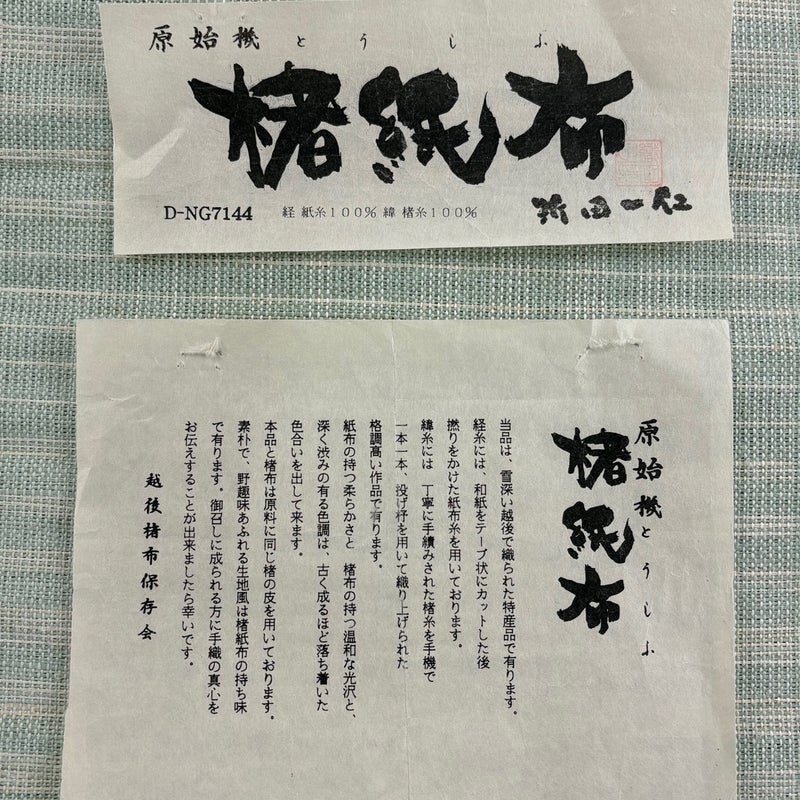 原始機とうしふ
楮紙布
D-NG7144 経 紙糸100% 緯 楮糸100%
原始機とうしふ
楮紙布
当品は、雪深い越後で織られた特産品で有ります。
経糸には、和紙をテープ状にカットした後
撚りをかけた紙布糸を用いております。
緯糸には 丁寧に手績みされた楮糸を手機で
一本一本、投げ杼を用いて織り上げられた
格調高い作品で有ります。
紙布の持つ柔らかさと 楮布の持つ温和な光沢と、
深く渋みの有る色調は、古く成るほど落ち着いた
色合いを出して来ます。
本品と楮布は原料に同じ楮の皮を用いております。
素朴で、野趣味あふれる生地風は楮紙布の持ち味
で有ります。御召しに成られる方に手織の真心を
お伝えすることが出来ましたら幸いです。
越後楮布保存会